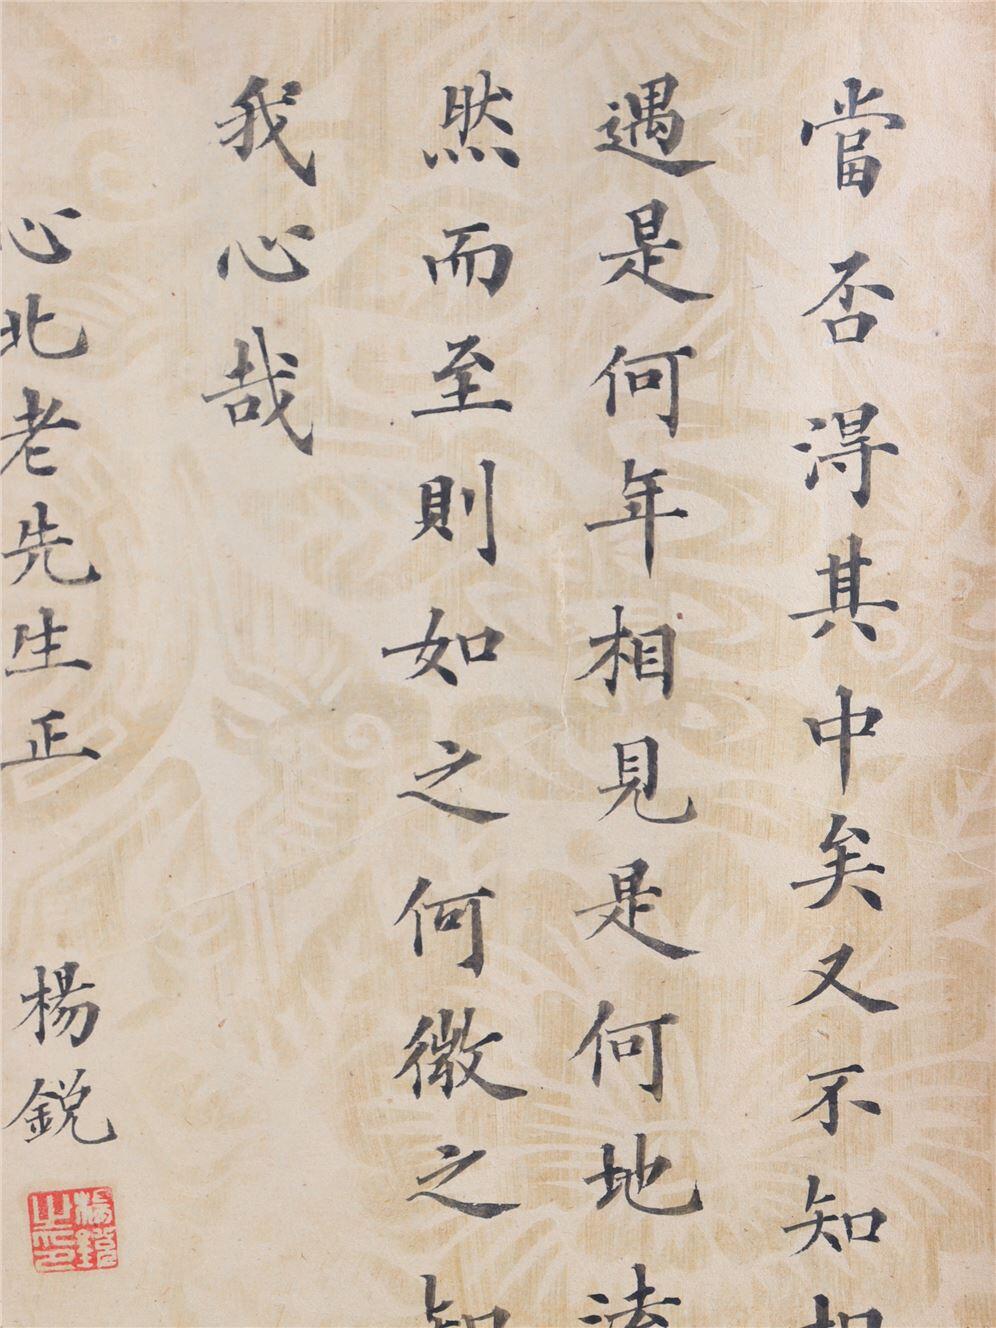 當否得其中矣又不知相
遇是何年相見是何地
然而至則如之何微之
我心哉
心北老先生正 楊銳
楊銳之印